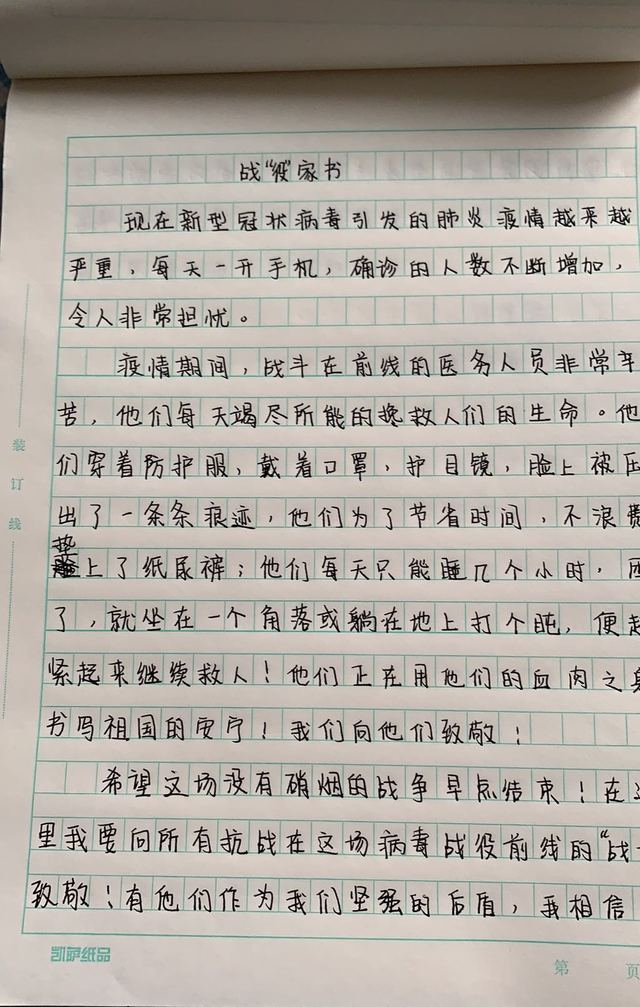 战“役”家书
现在新型冠状病毒引发的肺炎疫情越来越
严重，每天一开手机，确诊的人数不断增加，
令人非常担忧。
疫情期间，战斗在前线的医务人员非常辛
苦，他们每天竭尽所能的挽救人们的生命。他
们穿着防护服，戴着口罩，护目镜，脸上被压
出了一条条痕迹，他们为了节省时间，不浪费
垫上了纸尿裤；他们每天只能睡几个小时，
了，就坐在一个角落或躺在地上打个盹，便赶
紧起来继续救人！他们正在用他们的血肉之身
书写祖国的安宁！我们向他们致敬！
希望这场没有硝烟的战争早点结束！在这
里我要向所有抗战在这场病毒战役前线的“战
致敬！有他们作为我们坚强的后盾，我相信
装
订
线
凯萨纸品
第
页